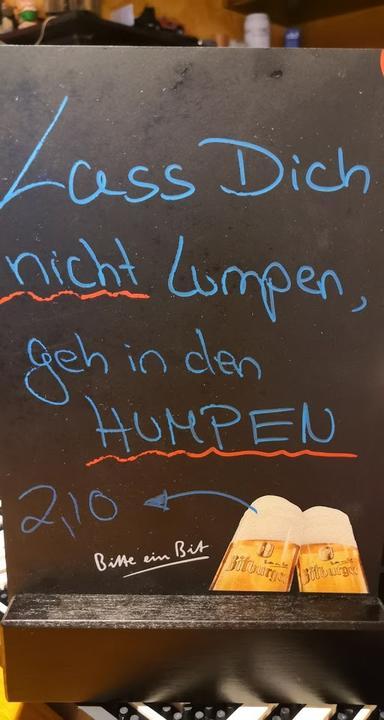 Lass Dich
nicht Lumpen,
geh in den
HUMPEN
2,10
Bitte ein Bit
Bitburger Bitburger